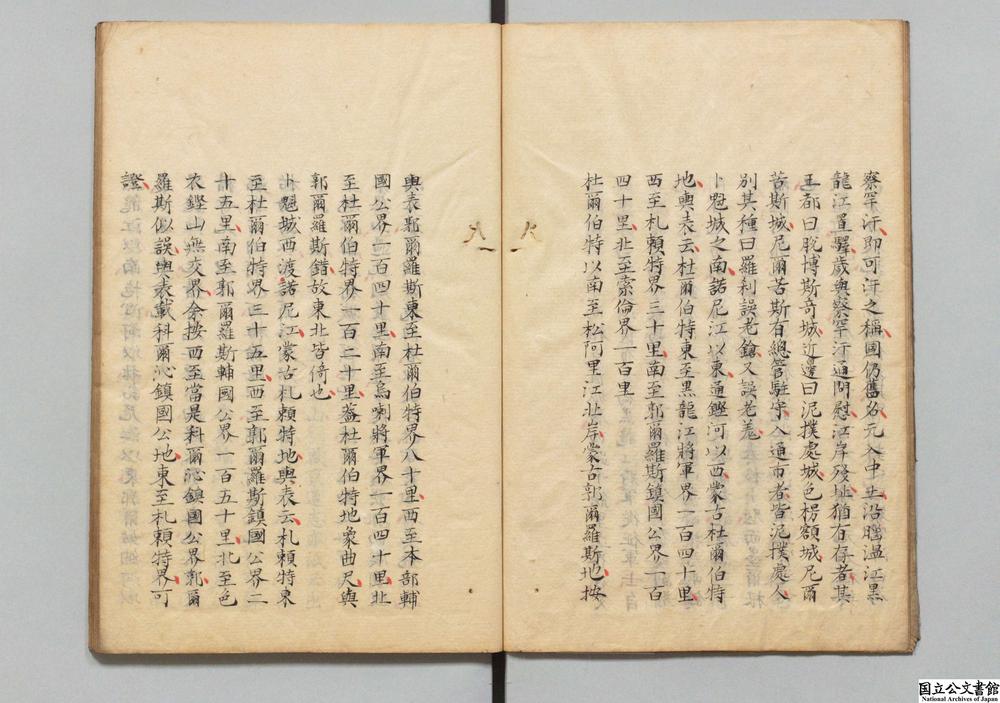 察罕汗即可汗之稱國仍舊名元入中土沿腽溫江黑
龍江置驛歲與察罕汗通問慰江岸殘址猶有存者其
王都曰脫博斯奇城近邊曰泥撲處城色楞額城尼爾
苦斯城尼爾苦斯有總管駐守入通市者皆泥撲處人
別其種曰羅利誤老鎗又誤老羗
卜魁城之南諾尼江以東通鏗河以西蒙古杜爾伯特
地輿表云杜爾伯特東至黑龍江將軍界一百四十里
西至札賴特界三十里南至郭爾羅斯鎮國公界一百
四十里北至索倫界一百里
杜爾伯特以南至松阿里江北岸蒙古郭爾羅斯地按
輿表郭爾羅斯東至杜爾伯特界八十里西至本部輔
國公界一百四十里南至烏喇將軍界一百四十里北
至杜爾伯特界一百二十里葢杜爾伯特地象曲尺與
郭爾羅斯錯故東北皆倚也
卜魁城西渡諾尼江蒙古札賴特地輿表云札賴特東
至杜爾伯特界三十五里西至郭爾羅斯鎮國公界二
十五里南至郭爾羅斯輔國公界一百五十里北至色
衣鏗山無交界余按西至當是科爾沁鎮國公界郭爾
羅斯似誤輿表載科爾沁鎮國公地東至札賴特界可
證
国立公文書館
National Archives of Japan